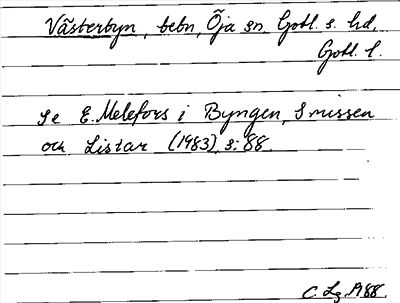 Västerbyn, bebn, Öja sn. Gotl. s. hd.
Gotl. l.
Se E. Melefors i Byngen, Smissen
och Listar (1983), s. 88.
C. Lg. 1988.